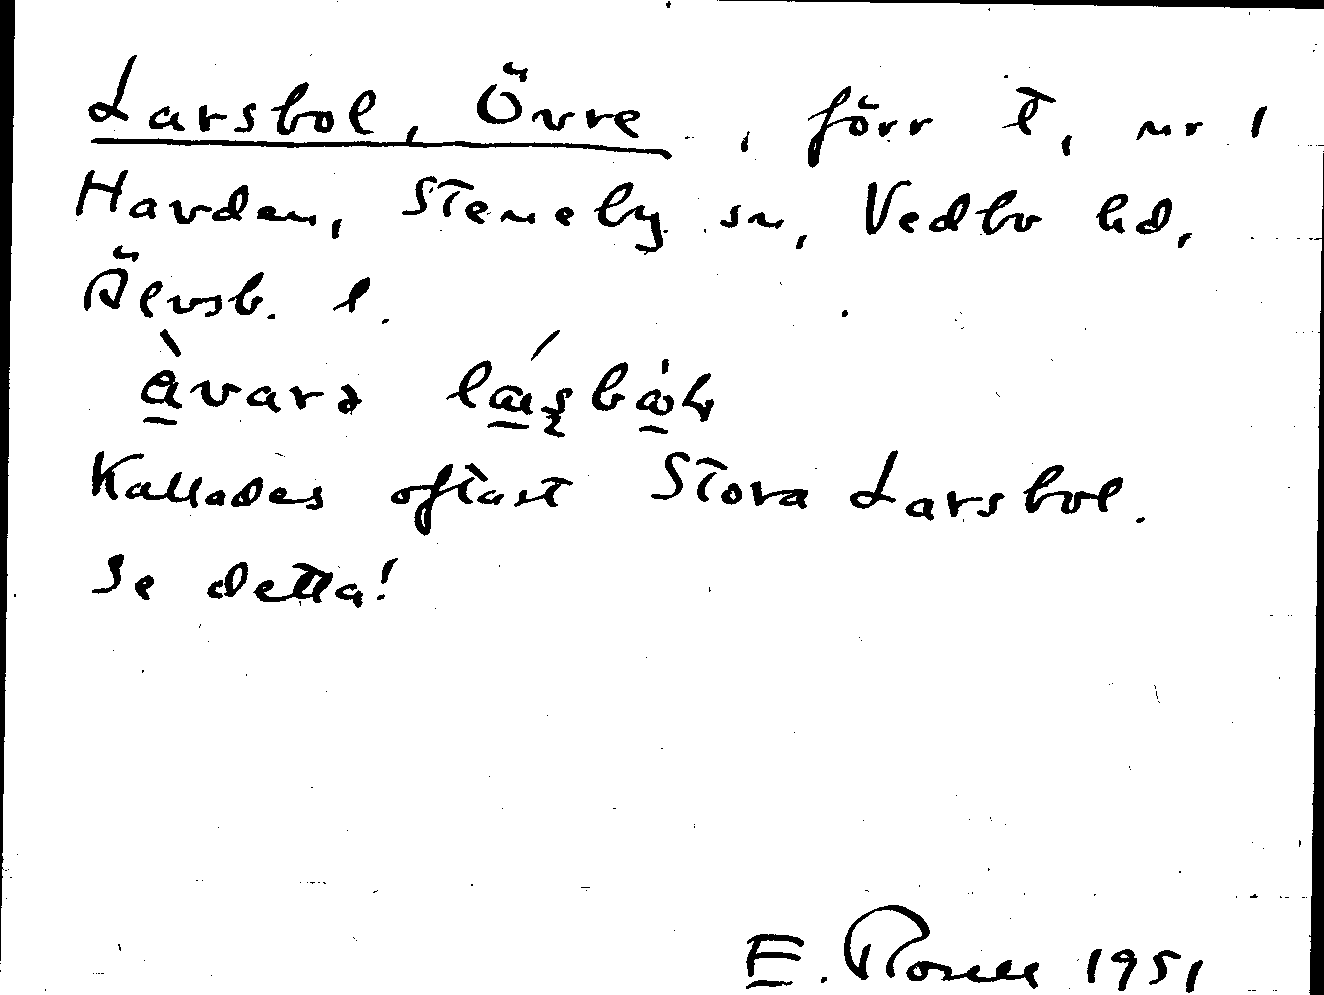 Larsbol, Övre, förr t, nr 1
Havden, Steneby sn, Vedbo hd,
Älvsb. l.
Kallades oftast Stora Larsbol.
Se detta!
E. Rosell 1951